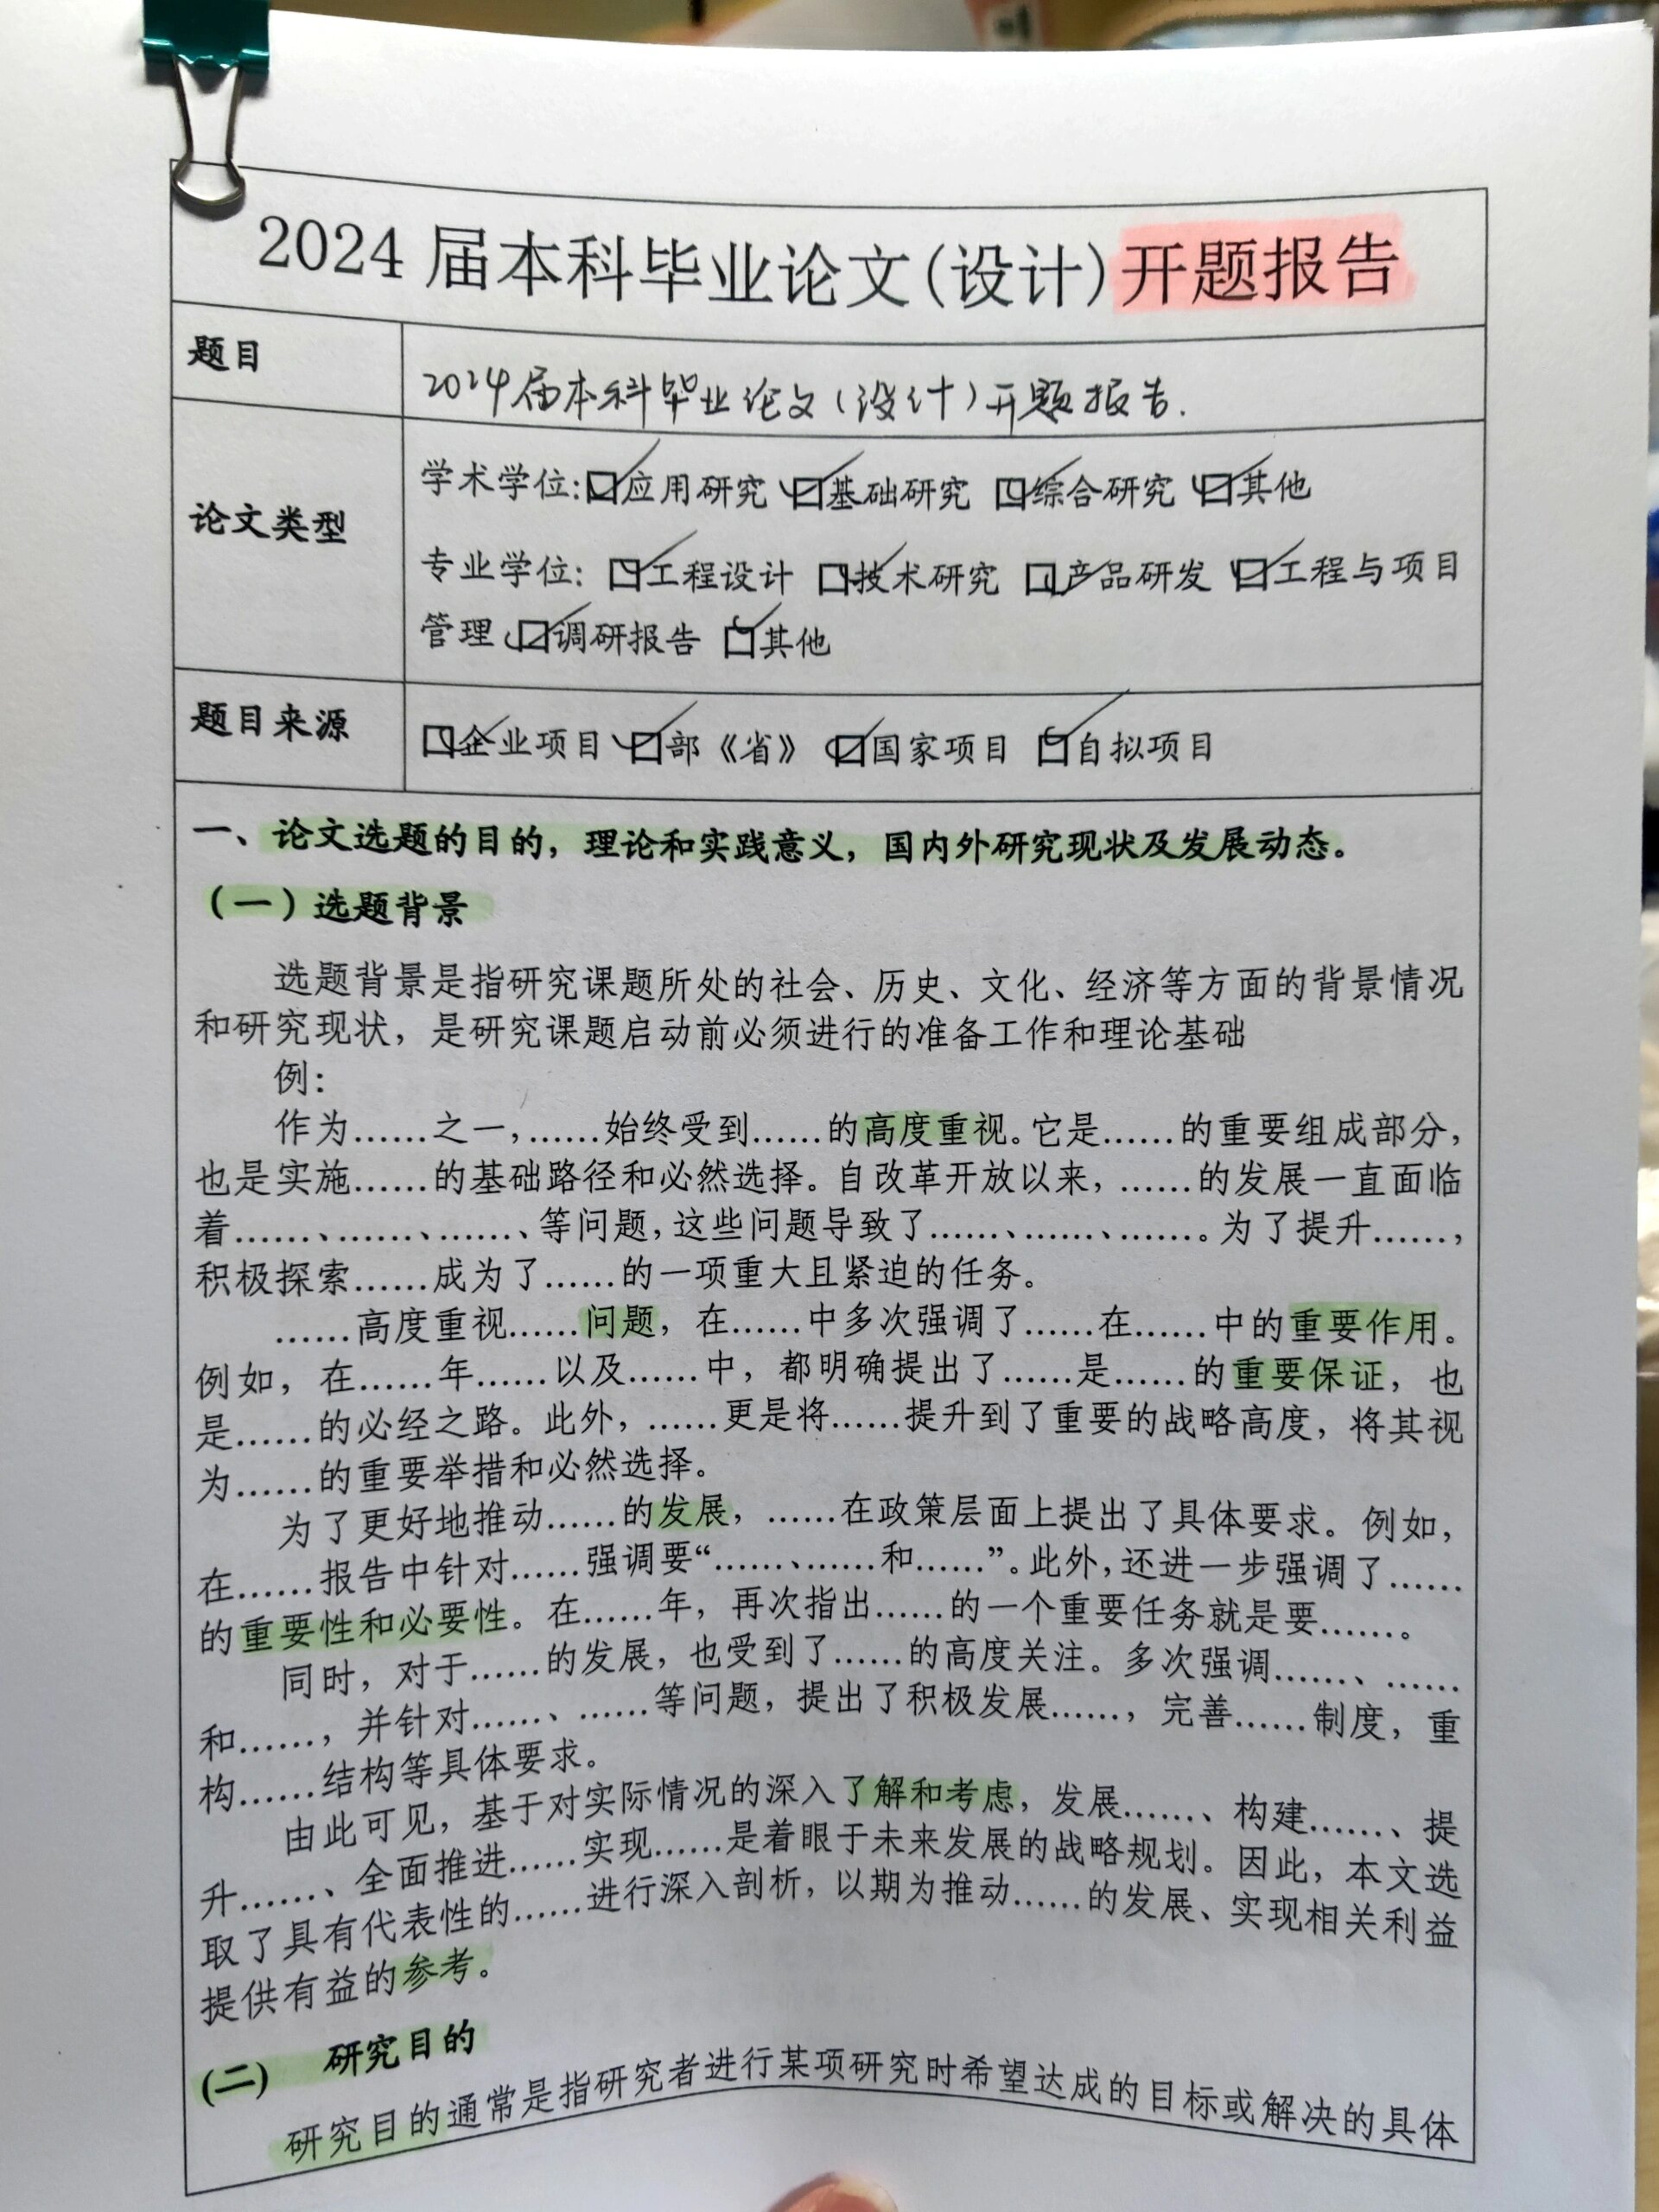 2024 届本科毕业论文(设计)开题报告
题目
2024届本科毕业论文(设计)开题报告.
论文类型
学术学位:☑应用研究 ☑基础研究 ☑综合研究 ☑其他
专业学位: ☑工程设计 ☑技术研究 ☑产品研发 ☑工程与项目
管理 ☑调研报告 ☑其他
题目来源
☑企业项目 ☑部《省》 ☑国家项目 ☑自拟项目
一、论文选题的目的，理论和实践意义，国内外研究现状及发展动态。
（一）选题背景
选题背景是指研究课题所处的社会、历史、文化、经济等方面的背景情况
和研究现状，是研究课题启动前必须进行的准备工作和理论基础
例：
作为……之一，……始终受到……的高度重视。它是……的重要组成部分，
也是实施……的基础路径和必然选择。自改革开放以来，……的发展一直面临
着……、……、……、等问题，这些问题导致了……、……、……。为了提升……，
积极探索……成为了……的一项重大且紧迫的任务。
……高度重视……问题，在……中多次强调了……在……中的重要作用。
例如，在……年……以及……中，都明确提出了……是……的重要保证，也
是……的必经之路。此外，……更是将……提升到了重要的战略高度，将其视
为……的重要举措和必然选择。
为了更好地推动……的发展，……在政策层面上提出了具体要求。例如，
在……报告中针对……强调要“……、……和……”。此外，还进一步强调了……
的重要性和必要性。在……年，再次指出……的一个重要任务就是要……。
同时，对于……的发展，也受到了……的高度关注。多次强调……、……
和……，并针对……、……等问题，提出了积极发展……，完善……制度，重
构……结构等具体要求。
由此可见，基于对实际情况的深入了解和考虑，发展……、构建……、提
升……、全面推进……实现……是着眼于未来发展的战略规划。因此，本文选
取了具有代表性的……进行深入剖析，以期为推动……的发展、实现相关利益
提供有益的参考。
(二) 研究目的
研究目的通常是指研究者进行某项研究时希望达成的目标或解决的具体